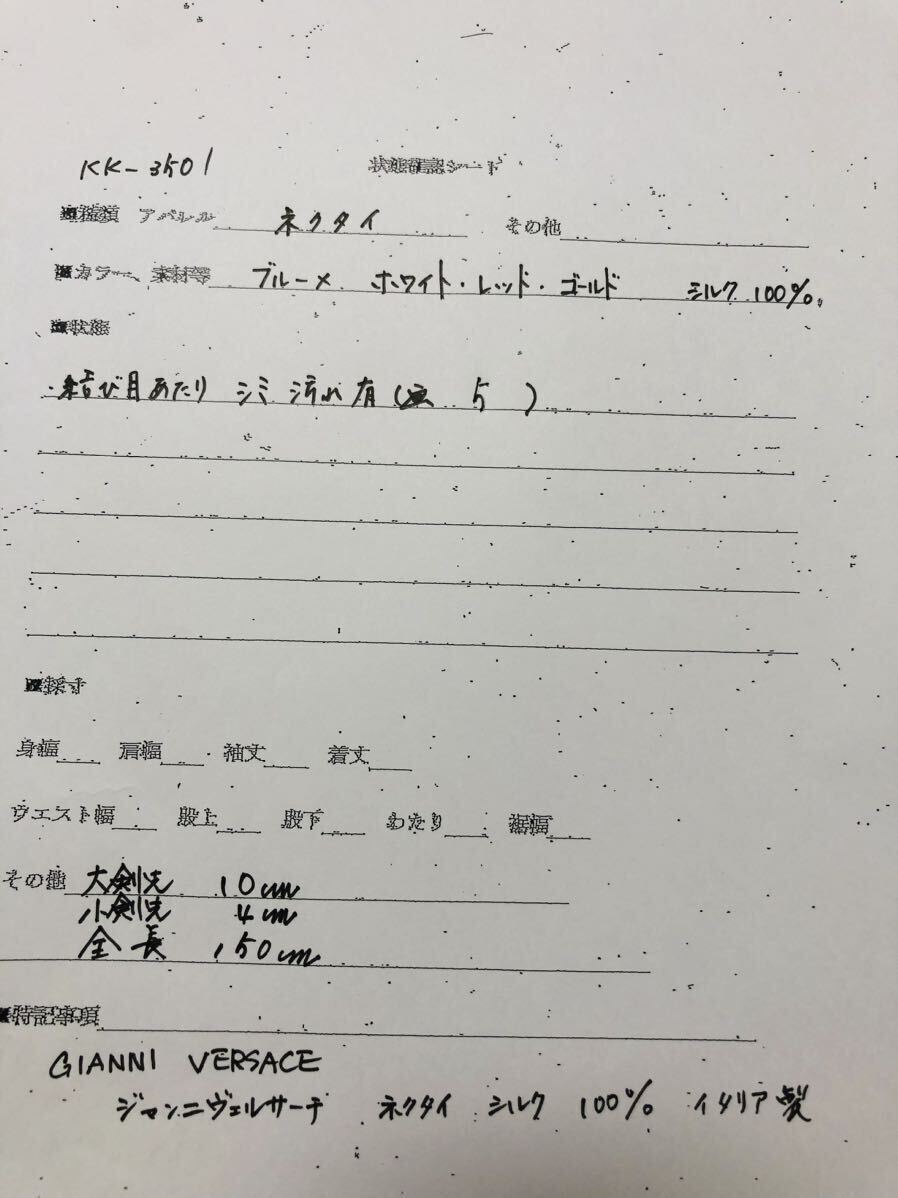 KK-3501 状態確認シート
■種類 アパレル ネクタイ その他
■カラー、素材等 ブルーメ ホワイト・レッド・ゴールド シルク 100%。
■状態
・結び目あたり シミ 汚れ 有( 5 )
■採寸
身幅 肩幅 袖丈 着丈
ウエスト幅 股上 股下 わたり 裾幅
その他 大剣先 10cm
小剣先 4cm
全長 150cm
■特記事項
GIANNI VERSACE
ジャンニヴェルサーチ ネクタイ シルク 100% イタリア製